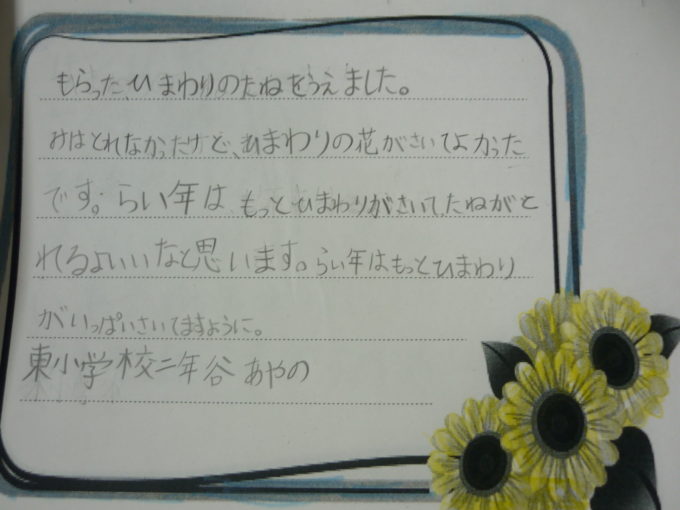 もらったひまわりのたねをうえました。
みはとれなかったけど、ひまわりの花がさいてよかった
です。らい年は、もっとひまわりがさいて、たねがと
れるといいなと思います。らい年はもっとひまわり
がいっぱいさいてますように。
東小学校二年谷あやの